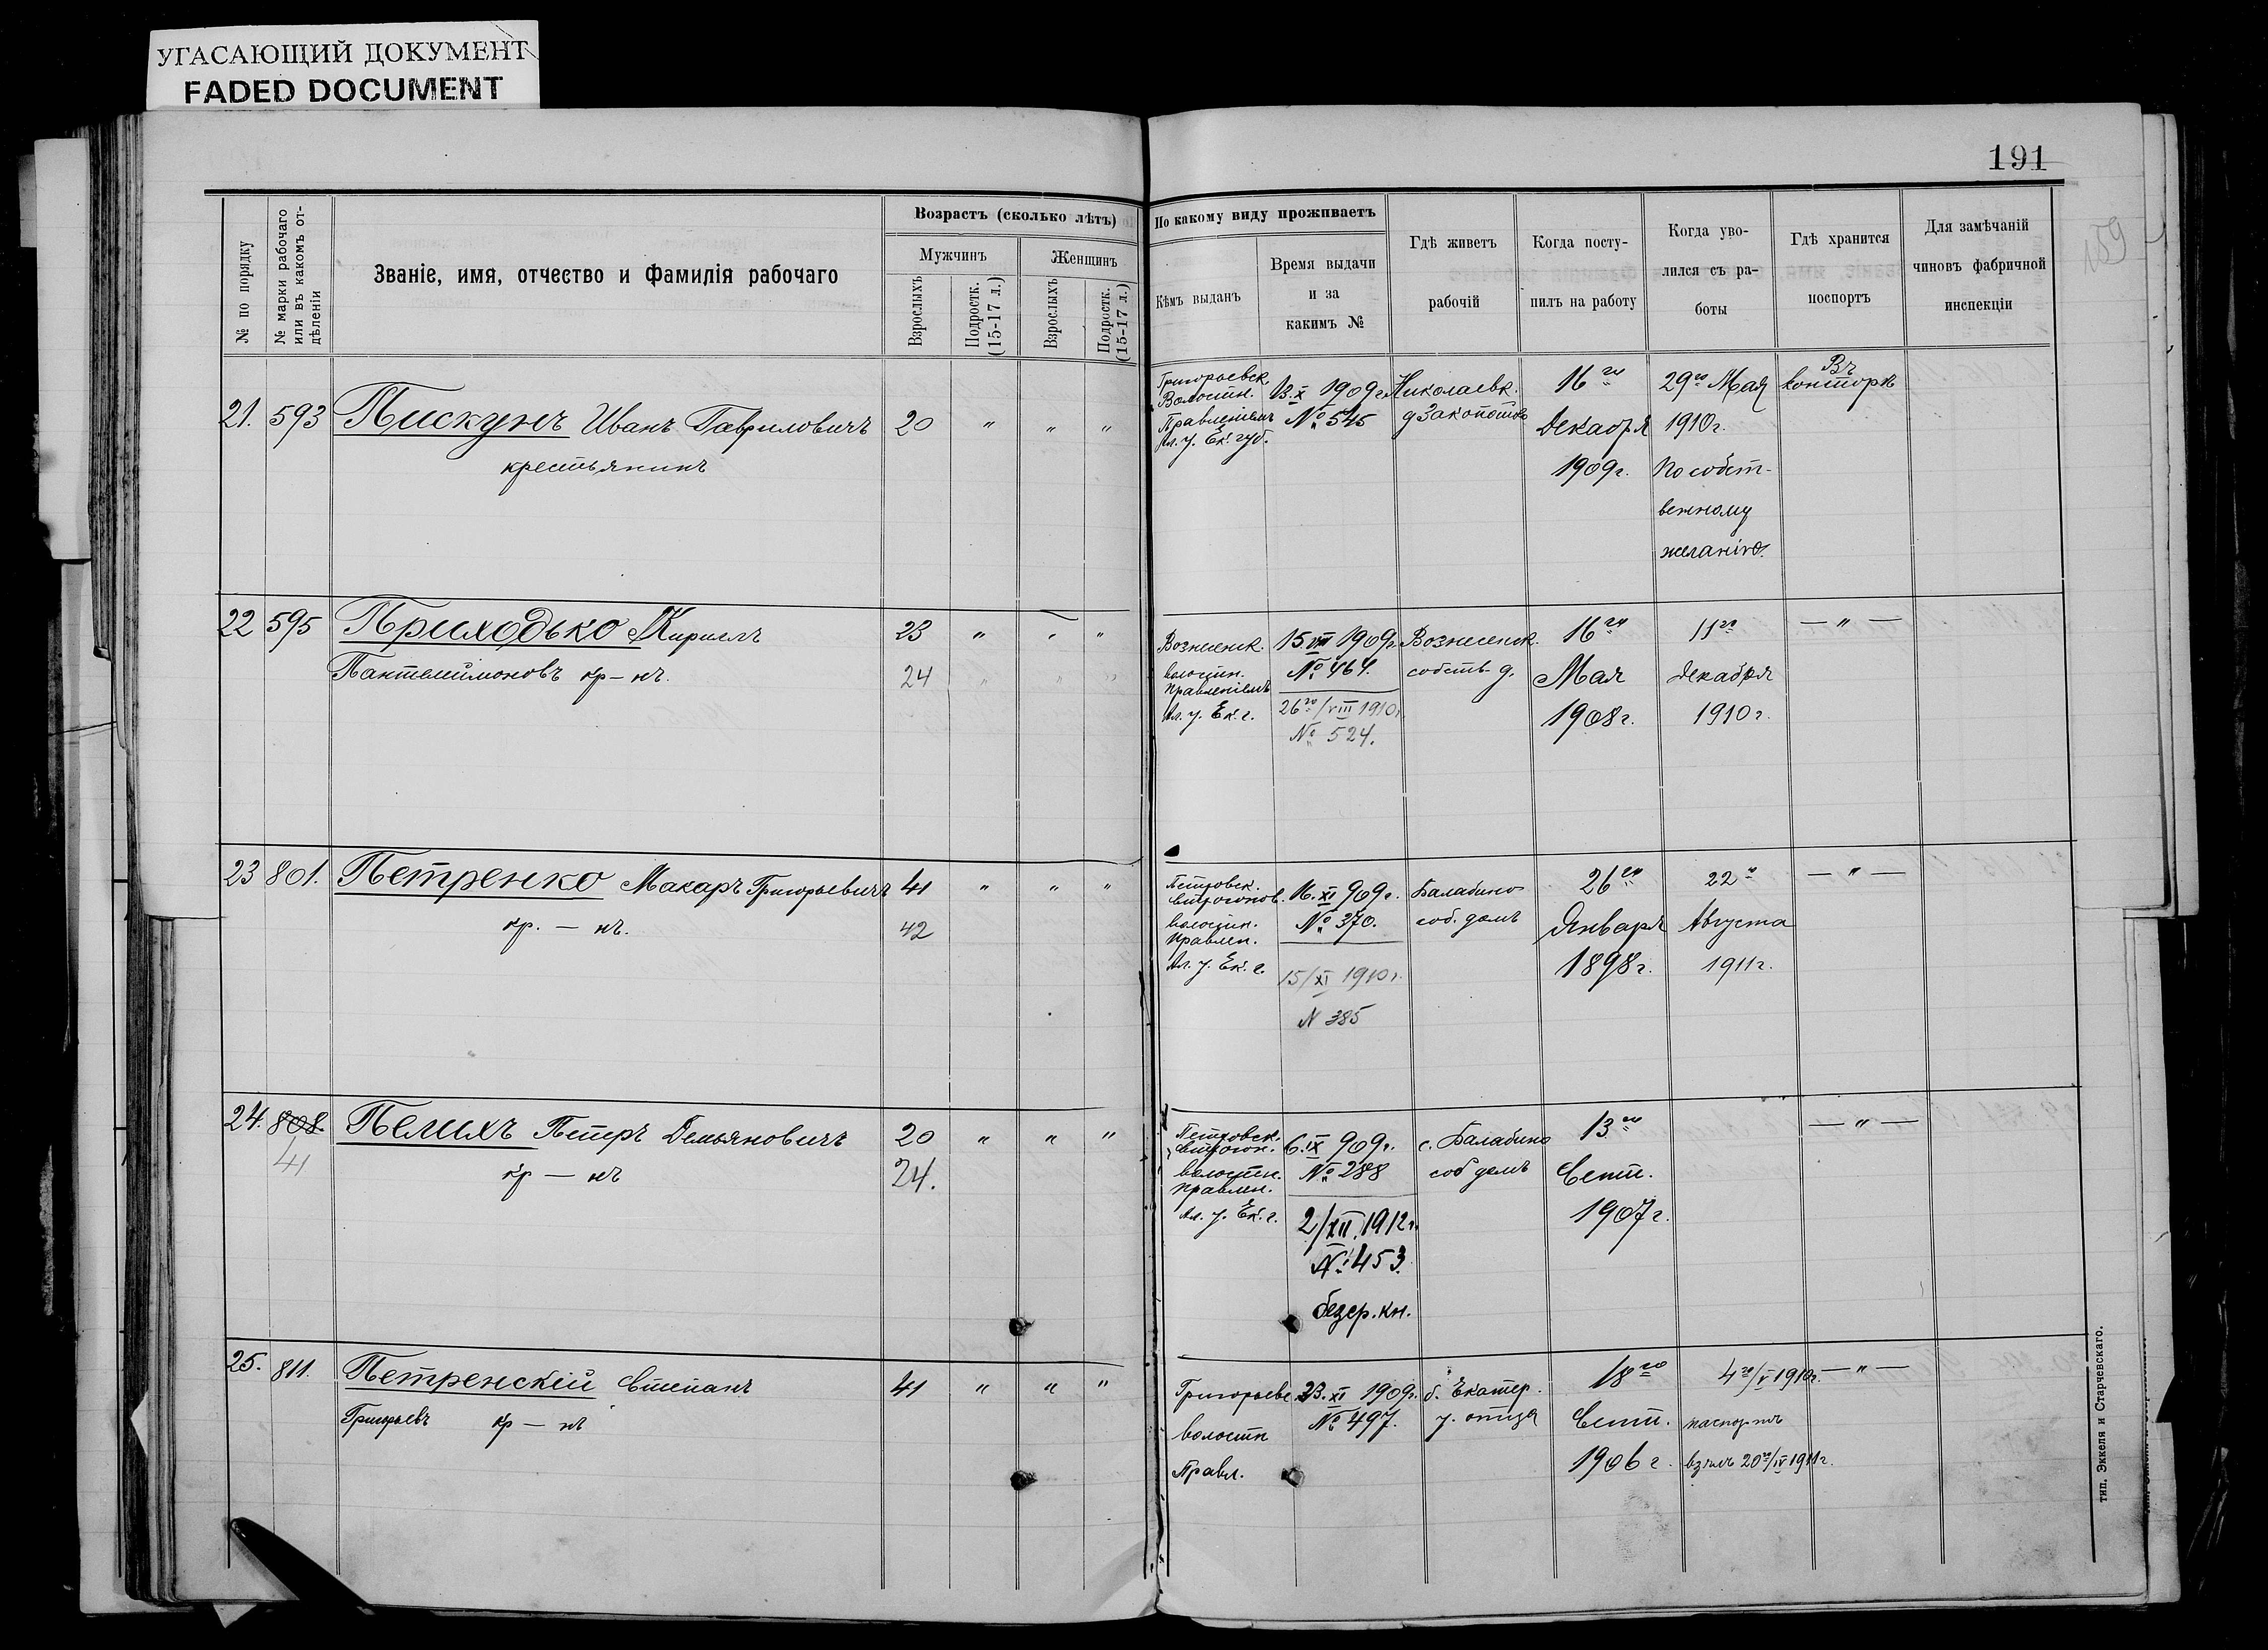 УГАСАЮЩИЙ ДОКУМЕНТ
FADED DOCUMENT
191
159
№ по порядку
№ марки рабочаго
или въ какомъ от-
дѣленіи
Званіе, имя, отчество и фамилія рабочаго
Возрастъ (сколько лѣтъ)
Мужчинъ
Женщинъ
Взрослыхъ
Подростк.
(15-17 л.)
Взрослыхъ
Подростк.
(15-17 л.)
По какому виду проживаетъ
Кѣмъ выданъ
Время выдачи
и за
какимъ №
Гдѣ живетъ
рабочій
Когда посту-
пилъ на работу
Когда уво-
лился съ ра-
боты
Гдѣ хранится
поспортъ
Для замѣчаній
чиновъ фабричной
инспекціи
21. 593 Пискунъ Иванъ Гавриловичъ 20 " " "
крестьянинъ
Григорьевск.
Волостн.
Правленіемъ
Ал. у. Ек. губ.
13. X 1909 г.
№ 545
Николаевк.
16го
Декабря
1909 г.
29го Мая
1910 г.
По собст-
венному
желанію.
Въ
конторѣ
22 595 Приходько Кириллъ 23 " " "
Пантелиймоновъ кр-нъ. 24 " " "
Вознесенск.
волостн.
правленіемъ
Ал. у. Ек. г.
15. VIII 1909 г.
№ 464.
26го/VIII 1910 г.
№ 524.
Вознесенск.
собств. д.
16го
Мая
1908 г.
11го
Декабря
1910 г.
— " —
23 801. Петренко Макаръ Григорьевичъ 41 " " "
кр. — нъ. 42
Петровск.
Свистунов.
волостн.
правлен.
Ал. у. Ек. г.
16. XI 909 г.
№ 370.
15/XI 1910 г.
N 385
Балабино
соб. домъ
26го
Января
1898 г.
22го
Августа
1911 г.
— " —
24. 808. Пелихъ Петръ Демьяновичъ 20 " " "
41 кр — нъ 24.
Петровск.
волостн.
правлен.
Ал. у. Ек. г.
6. IX 909 г.
№ 288
2/XII. 1912 г.
№ 453.
безср. кн.
с. Балабино
соб домъ
13го
Сент.
1907 г.
— " —
25. 811. Петренскій Степанъ 41 " " "
Григорьевъ кр — нъ
Григорьевс
волостн
Правл.
23. XI 1909 г.
№ 497.
б. Екатер.
у. отца
18го
Сент.
1906 г.
4го/V 1910 г.
паспортъ
взялъ 20го/IV 1911 г.
— " —
тип. Эккеля и Старчевскаго.